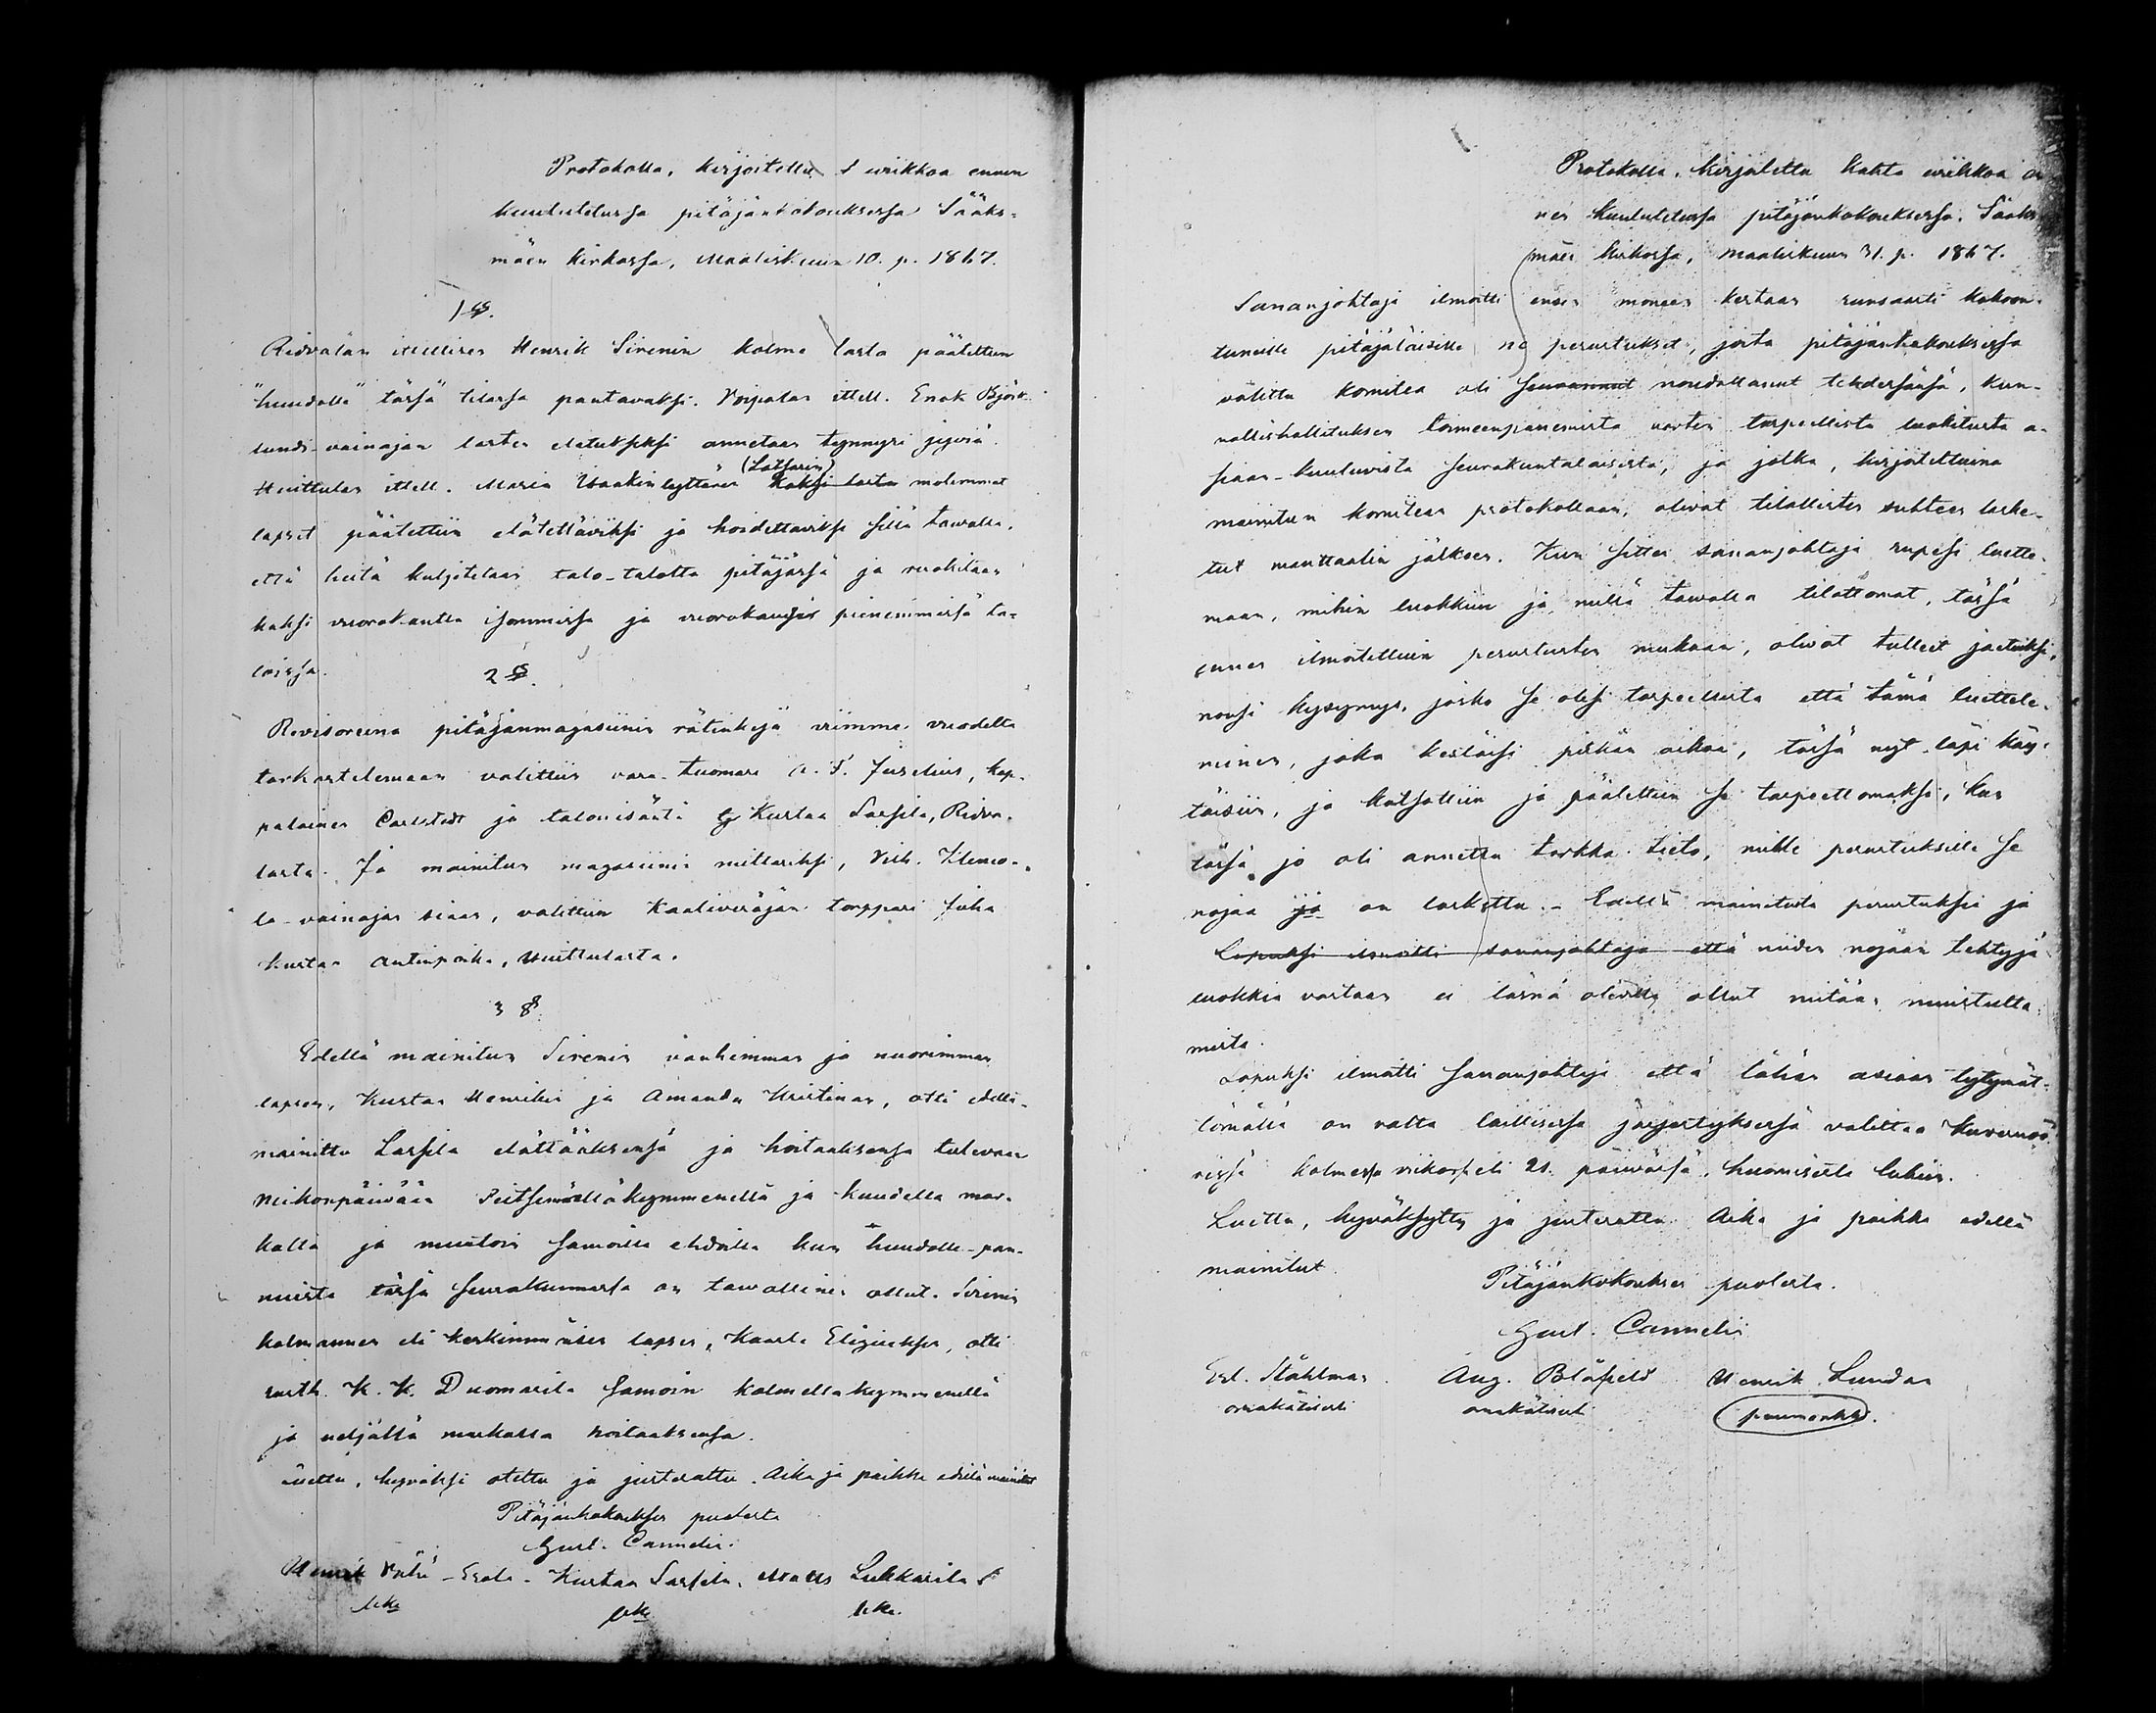 Protokolla, kirjoitettu 1 wiikkoa ennen
kuulutetussa pitäjänkokouksessa Sääks-
mäen kirkossa, Maaliskuun 10. p. 1867.
1 §.
Ridvalan ittellisen Henrik Sirenin kolme lasta päätettiin
"huudolle" tässä tilassa pantavaksi. Voipalan ittell. Enok Björk-
lundi-vainajan lasten elatukseksi annetaan tynnyri jyviä.
Huittulan ittell. Maria Iisakin tyttären (Latsarin) kaksi lasta molemmat
lapset päätettiin elätettäviksi ja hoidettaviksi sillä tavalla,
että heitä kuljetetaan talo-talolta pitäjässä ja ruokitaan
kaksi vuorokautta isommissa ja vuorokausi pienemmissä ta-
loissa.
2 §.
Revisoreina pitäjänmagasiinin rätinkejä viimme vuodelta
tarkastelemaan valittiin vara-tuomari A. F. Juselius, kap-
palainen Carlstedt ja talonisäntä Kustaa Sarsila, Ridva-
lasta. Ja mainitun magasiinin mittariksi, Vilh.
la-vainajan siaan, valittiin Kaaliveräjän torppari Juha
Kustaa Antinpoika, Huittulasta.
3 §.
Edellä mainitun Sirenin vanhimman ja nuorimman
lapsen, Kustaa Henrikin ja Amanda Kristinan, otti edellä-
mainittu Sarsila elättääksensä ja hoitaaksensa tulevaan
Mikonpäivään seitsemälläkymmenellä ja kuudella mar-
kalla ja muutoin samoilla ehdoilla kun huudolle-pan-
nuista tässä seurakunnassa on tavallinen ollut. Sirenin
kolmannen eli keskimmäisen lapsen, Kaarle Eligiuksen, otti
rusth. K. K. Duomarila samoin kolmellakymmenellä
ja neljällä markalla hoitaaksensa.
Luettu, hyväksi otettu ja justerattu. Aika ja paikka edellä mainitut
Pitäjänkokouksen puolesta
Gust. Cannelin.
Henrik Vähä-Eerola. Kustaa Sarsila. Matts Lukkarila
Protokolla, kirjoitettu kahta wiikkoa en-
nen kuulutetussa pitäjänkokouksessa, Sääks-
mäen kirkossa, maaliskuun 31. p. 1867.
Sananjohtaja ilmoitti ensin moneen kertaan runsaasti kokoon-
tuneille pitäjäläisille ne perustukset, joita pitäjänkokouksissa
valittu komitea oli seurannut noudattanut tehdessänsä, kun-
nallishallituksen toimeenpanemista varten tarpeellista luokitusta a-
siaan-kuuluvista seurakuntalaisista, ja jotka, kirjoitettuina
mainitun komitean protokollaan, olivat tilallisten suhteen laske-
tut manttaalin jälkeen. Kun sitten sananjohtaja rupesi luette-
maan, mihin luokkiin ja millä tavalla tilattomat, tässä
ennen ilmoitettuin perustusten mukaan, olivat tulleet jaetuiksi,
nousi kysymys, josko se olisi tarpeellista että tämä luettele-
minen, joka kestäisi pitkän aikaa, tässä nyt läpi käy-
täisiin, ja katsottiin ja päätettiin se tarpeettomaksi, kun
tässä jo oli annettu tarkka tieto, mille perustuksille se
nojaa ja on laskettu. Edellä mainituita perustuksia ja
Lopuksi ilmoitti sananjohtaja että niiden nojaan tehtyjä
luokkia vastaan ei läsnä olevilla ollut mitään muistutta-
mista.
Lopuksi ilmoitti sananjohtaja että tähän asiaan tytymät-
tömällä on valta laillisessa järjestyksessä valittaa kuvernöö-
rissä kolmessa viikossa eli 21. päivässä, huomisesta lukien.
Luettu, hyväksytty ja justerattu. Aika ja paikka edellä
mainitut.
Pitäjänkokouksen puolesta.
Gust. Cannelin
Erl. Ståhlman Aug. Blåfield Henrik Lundan
omakätisesti omakätisesti puumerkki.